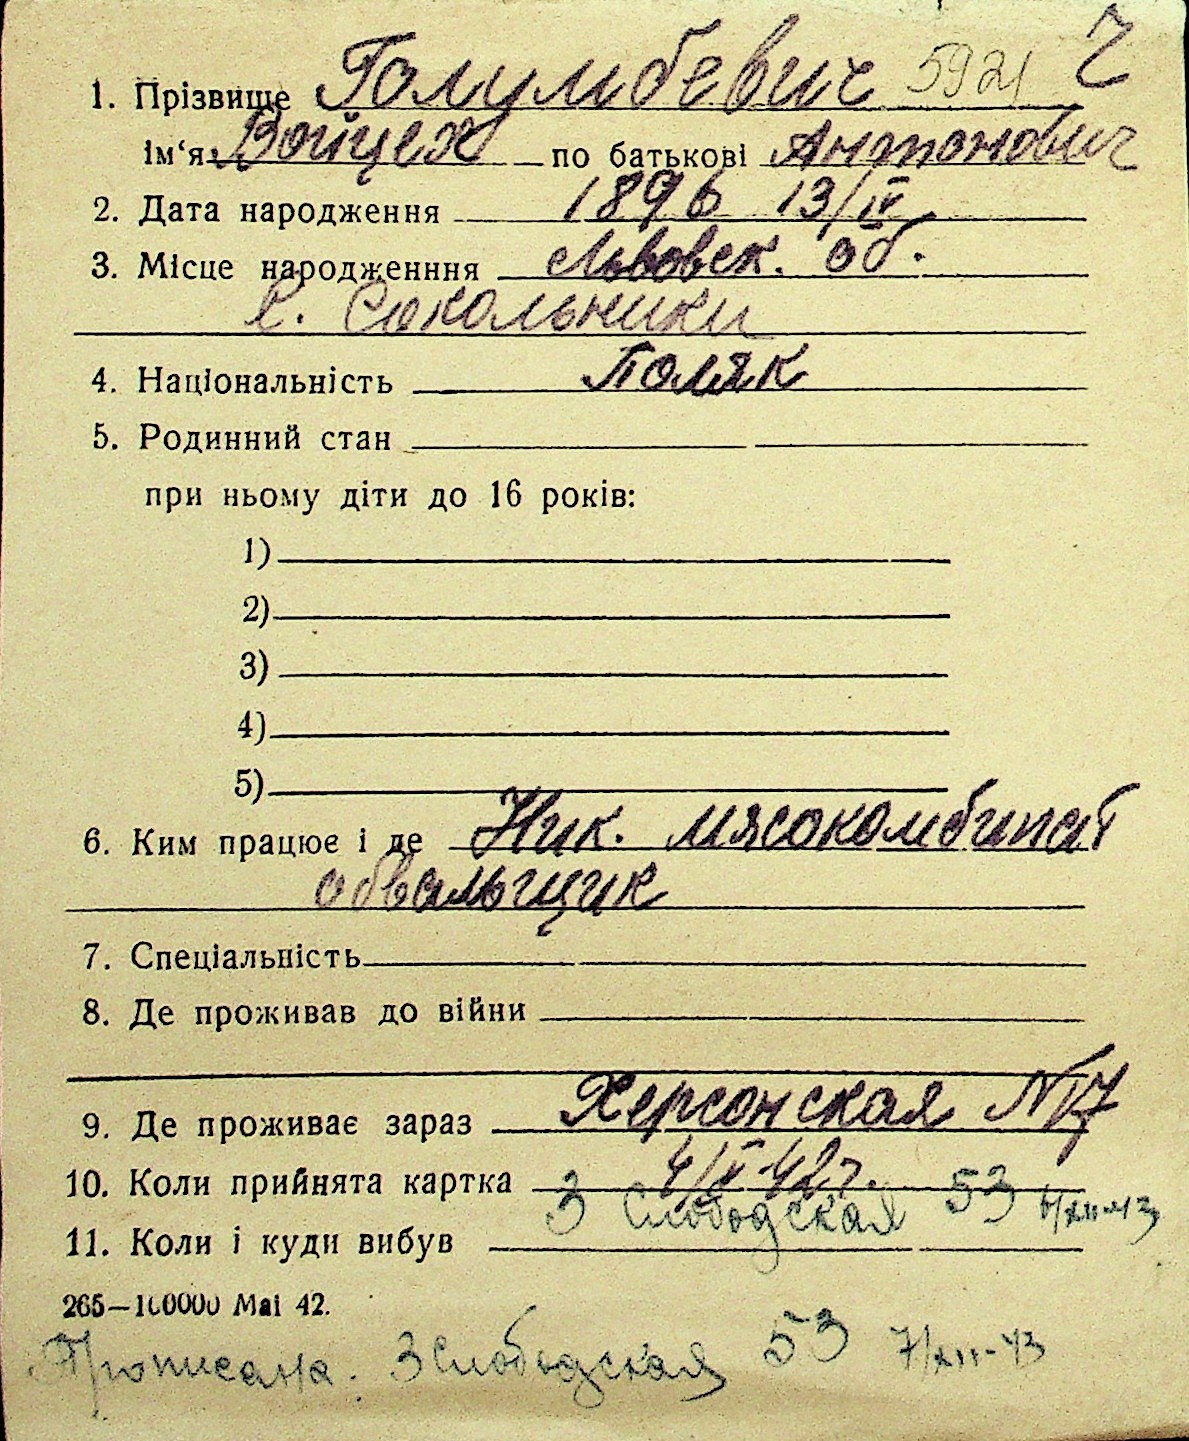 1. Прізвище Голумбевич 5921 Г
ім‘я Войцех по батькові Антонович
2. Дата народження 1896 13/IV
3. Місце народженння Львовск. об.
с. Сокольники
4. Національність Поляк
5. Родинний стан
при ньому діти до 16 років:
1)
2)
3)
4)
5)
6. Ким працює і де Ник. мясокомбинат
обвальщик
7. Спеціальність
8. Де проживав до війни
9. Де проживає зараз Херсонская №17
10. Коли прийнята картка 42г.
3 Слободская 53 4/XII-43
11. Коли і куди вибув
265—100000 Mai 42.
Прописана. 3 Слободская 53 7/XII-43